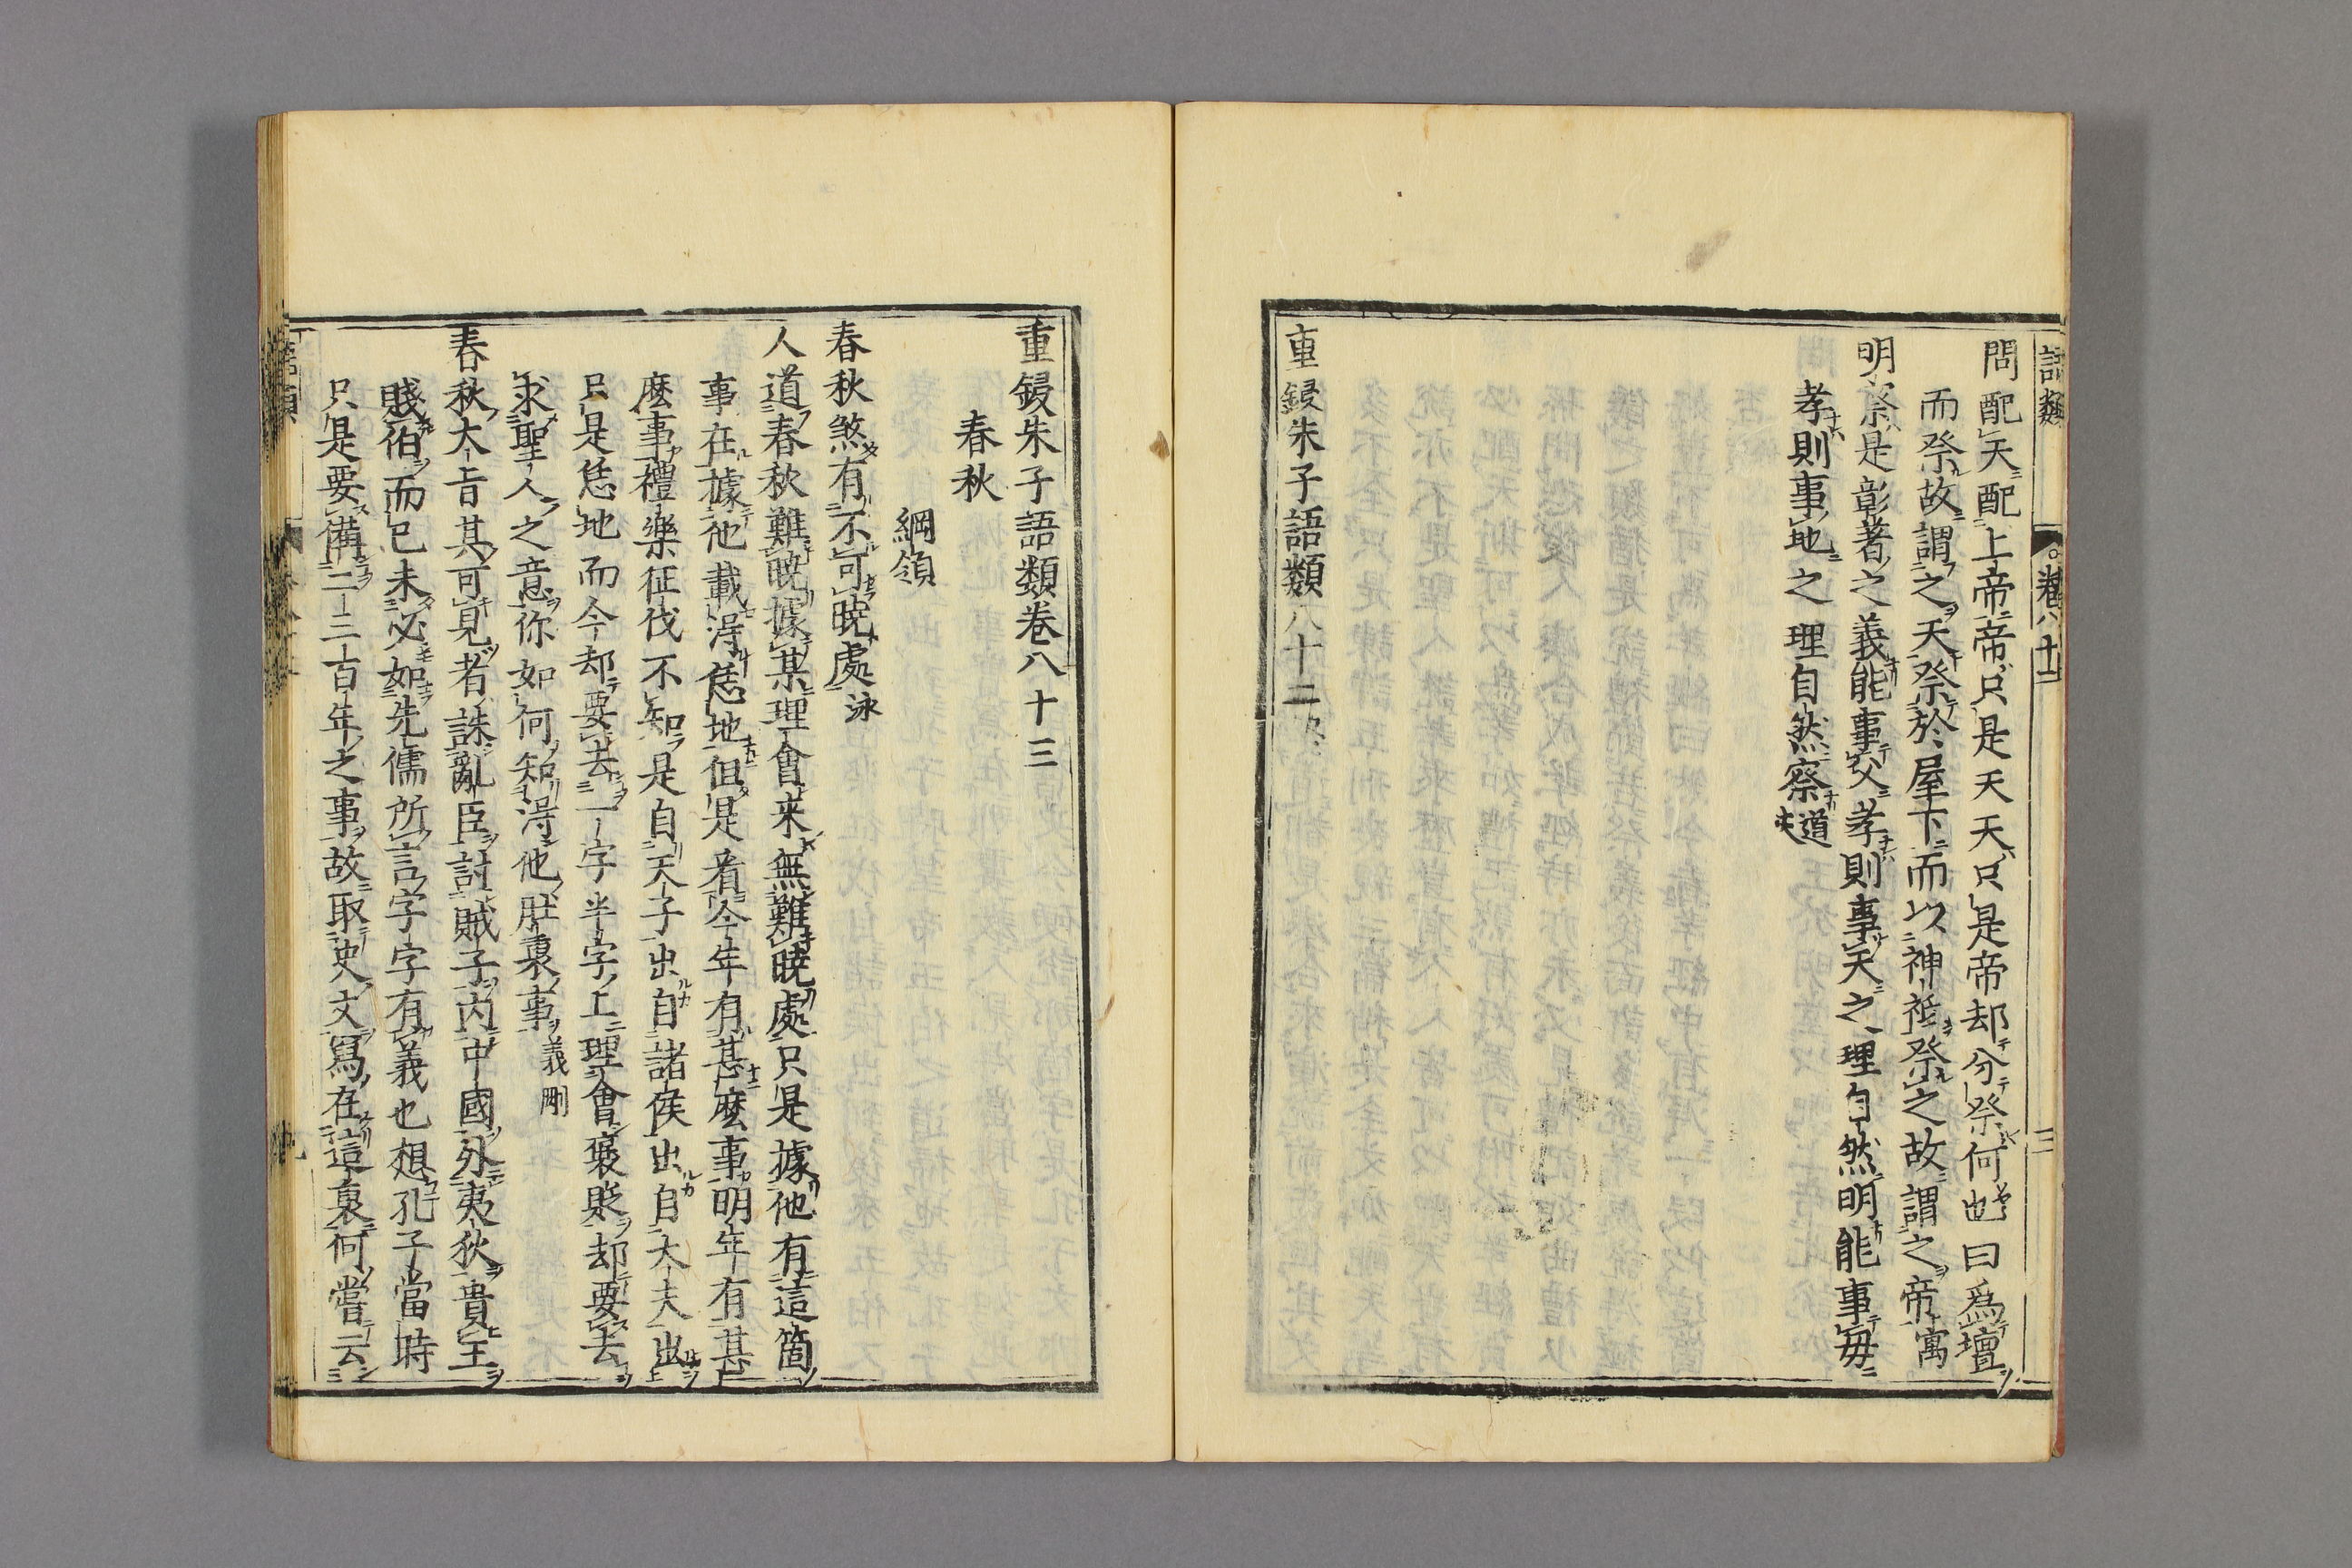 語類 卷八十二 三
問配天配上帝帝只是天天只是帝却分祭何也曰爲壇
而祭故謂之天祭於屋下而以神祗祭之故謂之帝寓
明察是彰著之義能事父孝則事天之理自然明能事母
孝則事地之理自然察道夫
重鋟朱子語類八十二終
重鋟朱子語類卷八十三
春秋
綱領
春秋煞有不可曉處泳
人道春秋難曉據某理會来無難曉處只是據他有這箇
事在據他載得恁地但是看今年有甚麼事明年有甚
麼事禮樂征伐不知是自天子出自諸侯出自大夫出
只是恁地而今却要去一字半字上理會褒貶却要去
求聖人之意你如何知得他肚裏事義剛
春秋大旨其可見者誅亂臣討賊子内中國外夷狄貴王
賤伯而已未必如先儒所言字字有義也想孔子當時
只是要備二三百年之事故取史文寫在這裏何嘗云